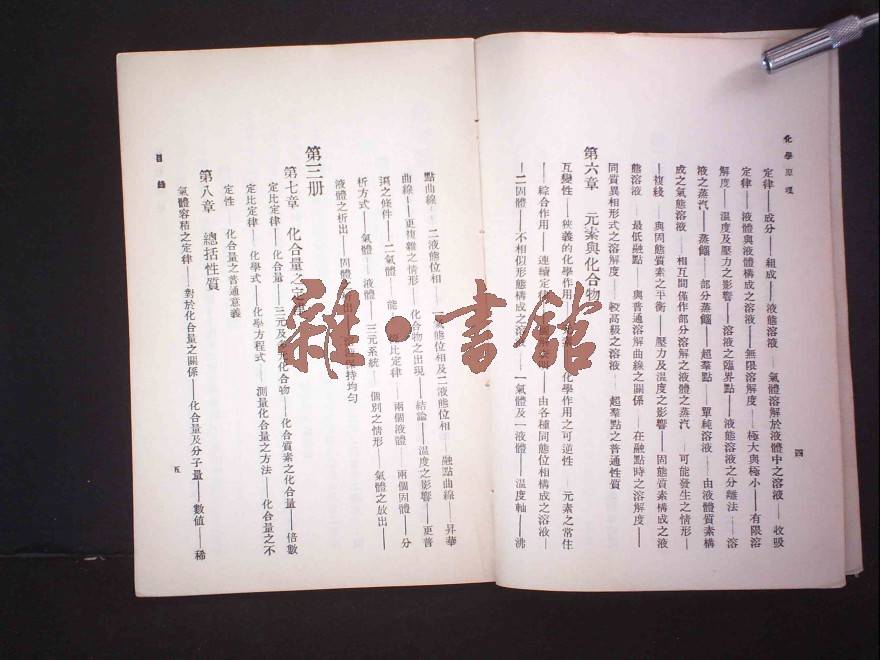 化學原理
四
定律——成分——組成——液態溶液——氣體溶解於液體中之溶液——收吸
定律——液體與液體構成之溶液——無限溶解度——極大與極小——有限溶
解度——溫度及壓力之影響——溶液之臨界點——液態溶液之分離法——溶
液之蒸汽——蒸餾——部分蒸餾——超羣點——單純溶液——由液體質素構
成之氣態溶液——相互間僅作部分溶解之液體之蒸汽——可能發生之情形——
複綫——與固態質素之平衡——壓力及溫度之影響——固態質素構成之液
態溶液——最低融點——與普通溶解曲線之關係——在融點時之溶解度——
同質異相形式之溶解度——較高級之溶液——超羣點之普通性質
第六章 元素與化合物
互變性——狹義的化學作用——元素——化學作用之可逆性——元素之常住
——綜合作用——連續定律——由各種同態位相構成之溶液——
——二固體——不相似形態構成之溶液——一氣體及一液體——溫度軸——沸
點曲線——二液態位相——一氣態位相及二液態位相——融點曲線——昇華
曲線——更複雜之情形——化合物之出現——結論——溫度之影響——更普
之條件——二氣體——能 比定律——兩個液體——兩個固體——分
析方式——氣體——液體——三元系統——個別之情形——氣體之放出——
液體之析出——固體之 出——溶液保持均勻
第三册
第七章 化合量之定律
定比定律——化合量——三元及多元化合物——化合質素之化合量——倍數
定比定律——化學式——化學方程式——測量化合量之方法——化合量之不
定性——化合量之普通意義
第八章 總括性質
氣體容積之定律——對於化合量之關係——化合量及分子量——數值——稀
目錄
五
雜·書館